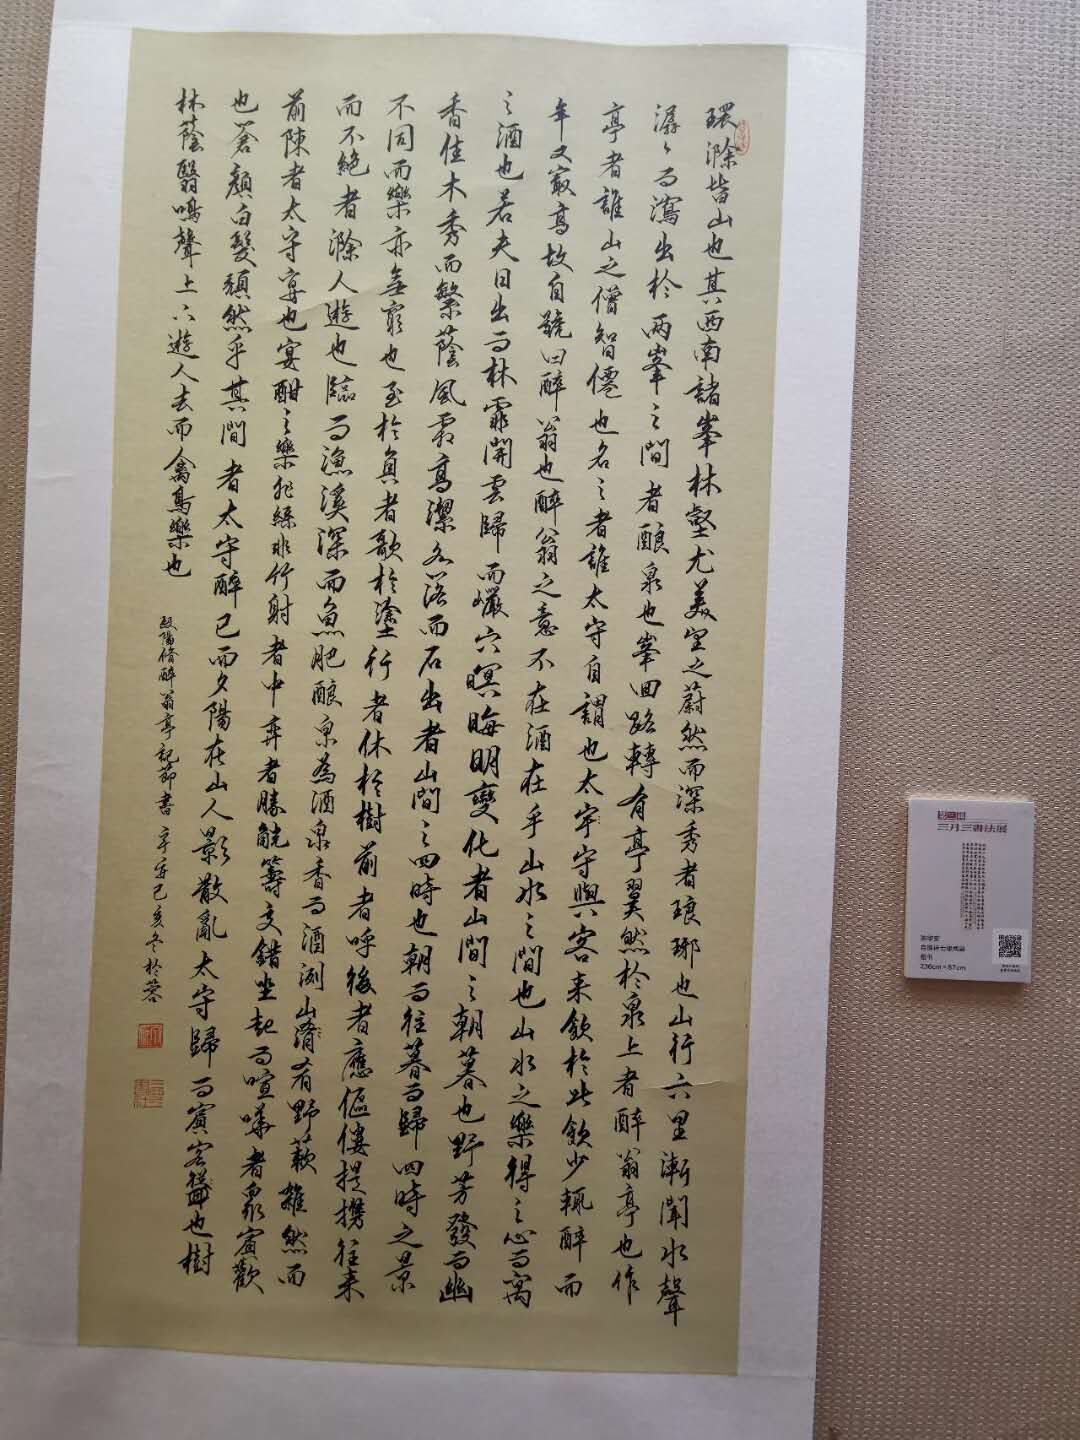 環滁皆山也其西南諸峯林壑尤美望之蔚然而深秀者琅琊也山行六里漸聞水聲
潺潺而瀉出於兩峯之間者釀泉也峯回路轉有亭翼然於泉上者醉翁亭也作
亭者誰山之僧智僊也名之者誰太守自謂也太守與客來飲於此飲少輒醉而
年又最高故自號曰醉翁也醉翁之意不在酒在乎山水之間也山水之樂得之心而寓
之酒也若夫日出而林霏開雲歸而巖穴暝晦明變化者山間之朝暮也野芳發而幽
香佳木秀而繁蔭風霜高潔水落而石出者山間之四時也朝而往暮而歸四時之景
不同而樂亦無窮也至於負者歌於塗行者休於樹前者呼後者應傴僂提攜往來
而不絕者滁人遊也臨而漁溪深而魚肥釀泉為酒泉香而酒洌山肴野蔌雜然而
前陳者太守宴也宴酣之樂非絲非竹射者中弈者勝觥籌交錯坐起而喧嘩者眾賓歡
也蒼顏白髮頹然乎其間者太守醉已而夕陽在山人影散亂太守歸而賓客從也樹
林蔭翳鳴聲上下遊人去而禽鳥樂也
歐陽脩醉翁亭記節書 辛 己亥冬於蓉
三月三書法展
236cm×57cm